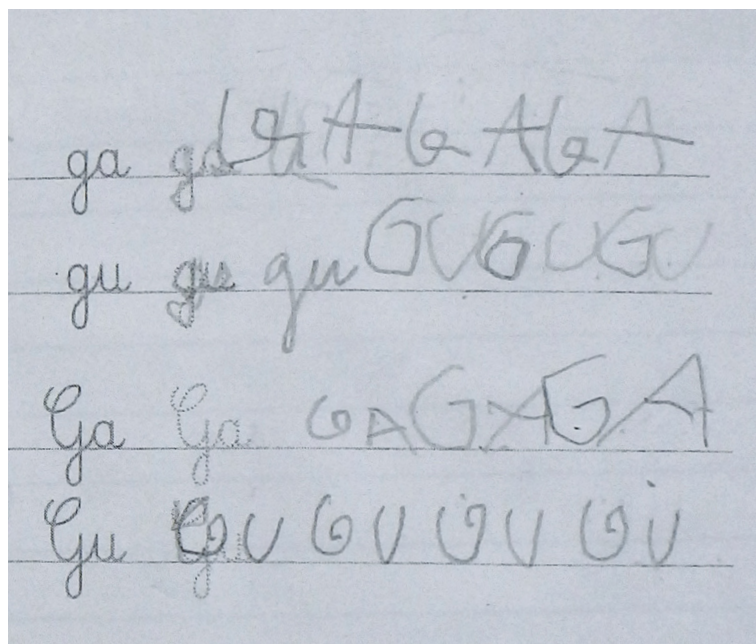 ga ga GA GA GA
gu gu gu GU GU GU
Ga Ga GA GA GA
Gu Gu GU GU GU GU